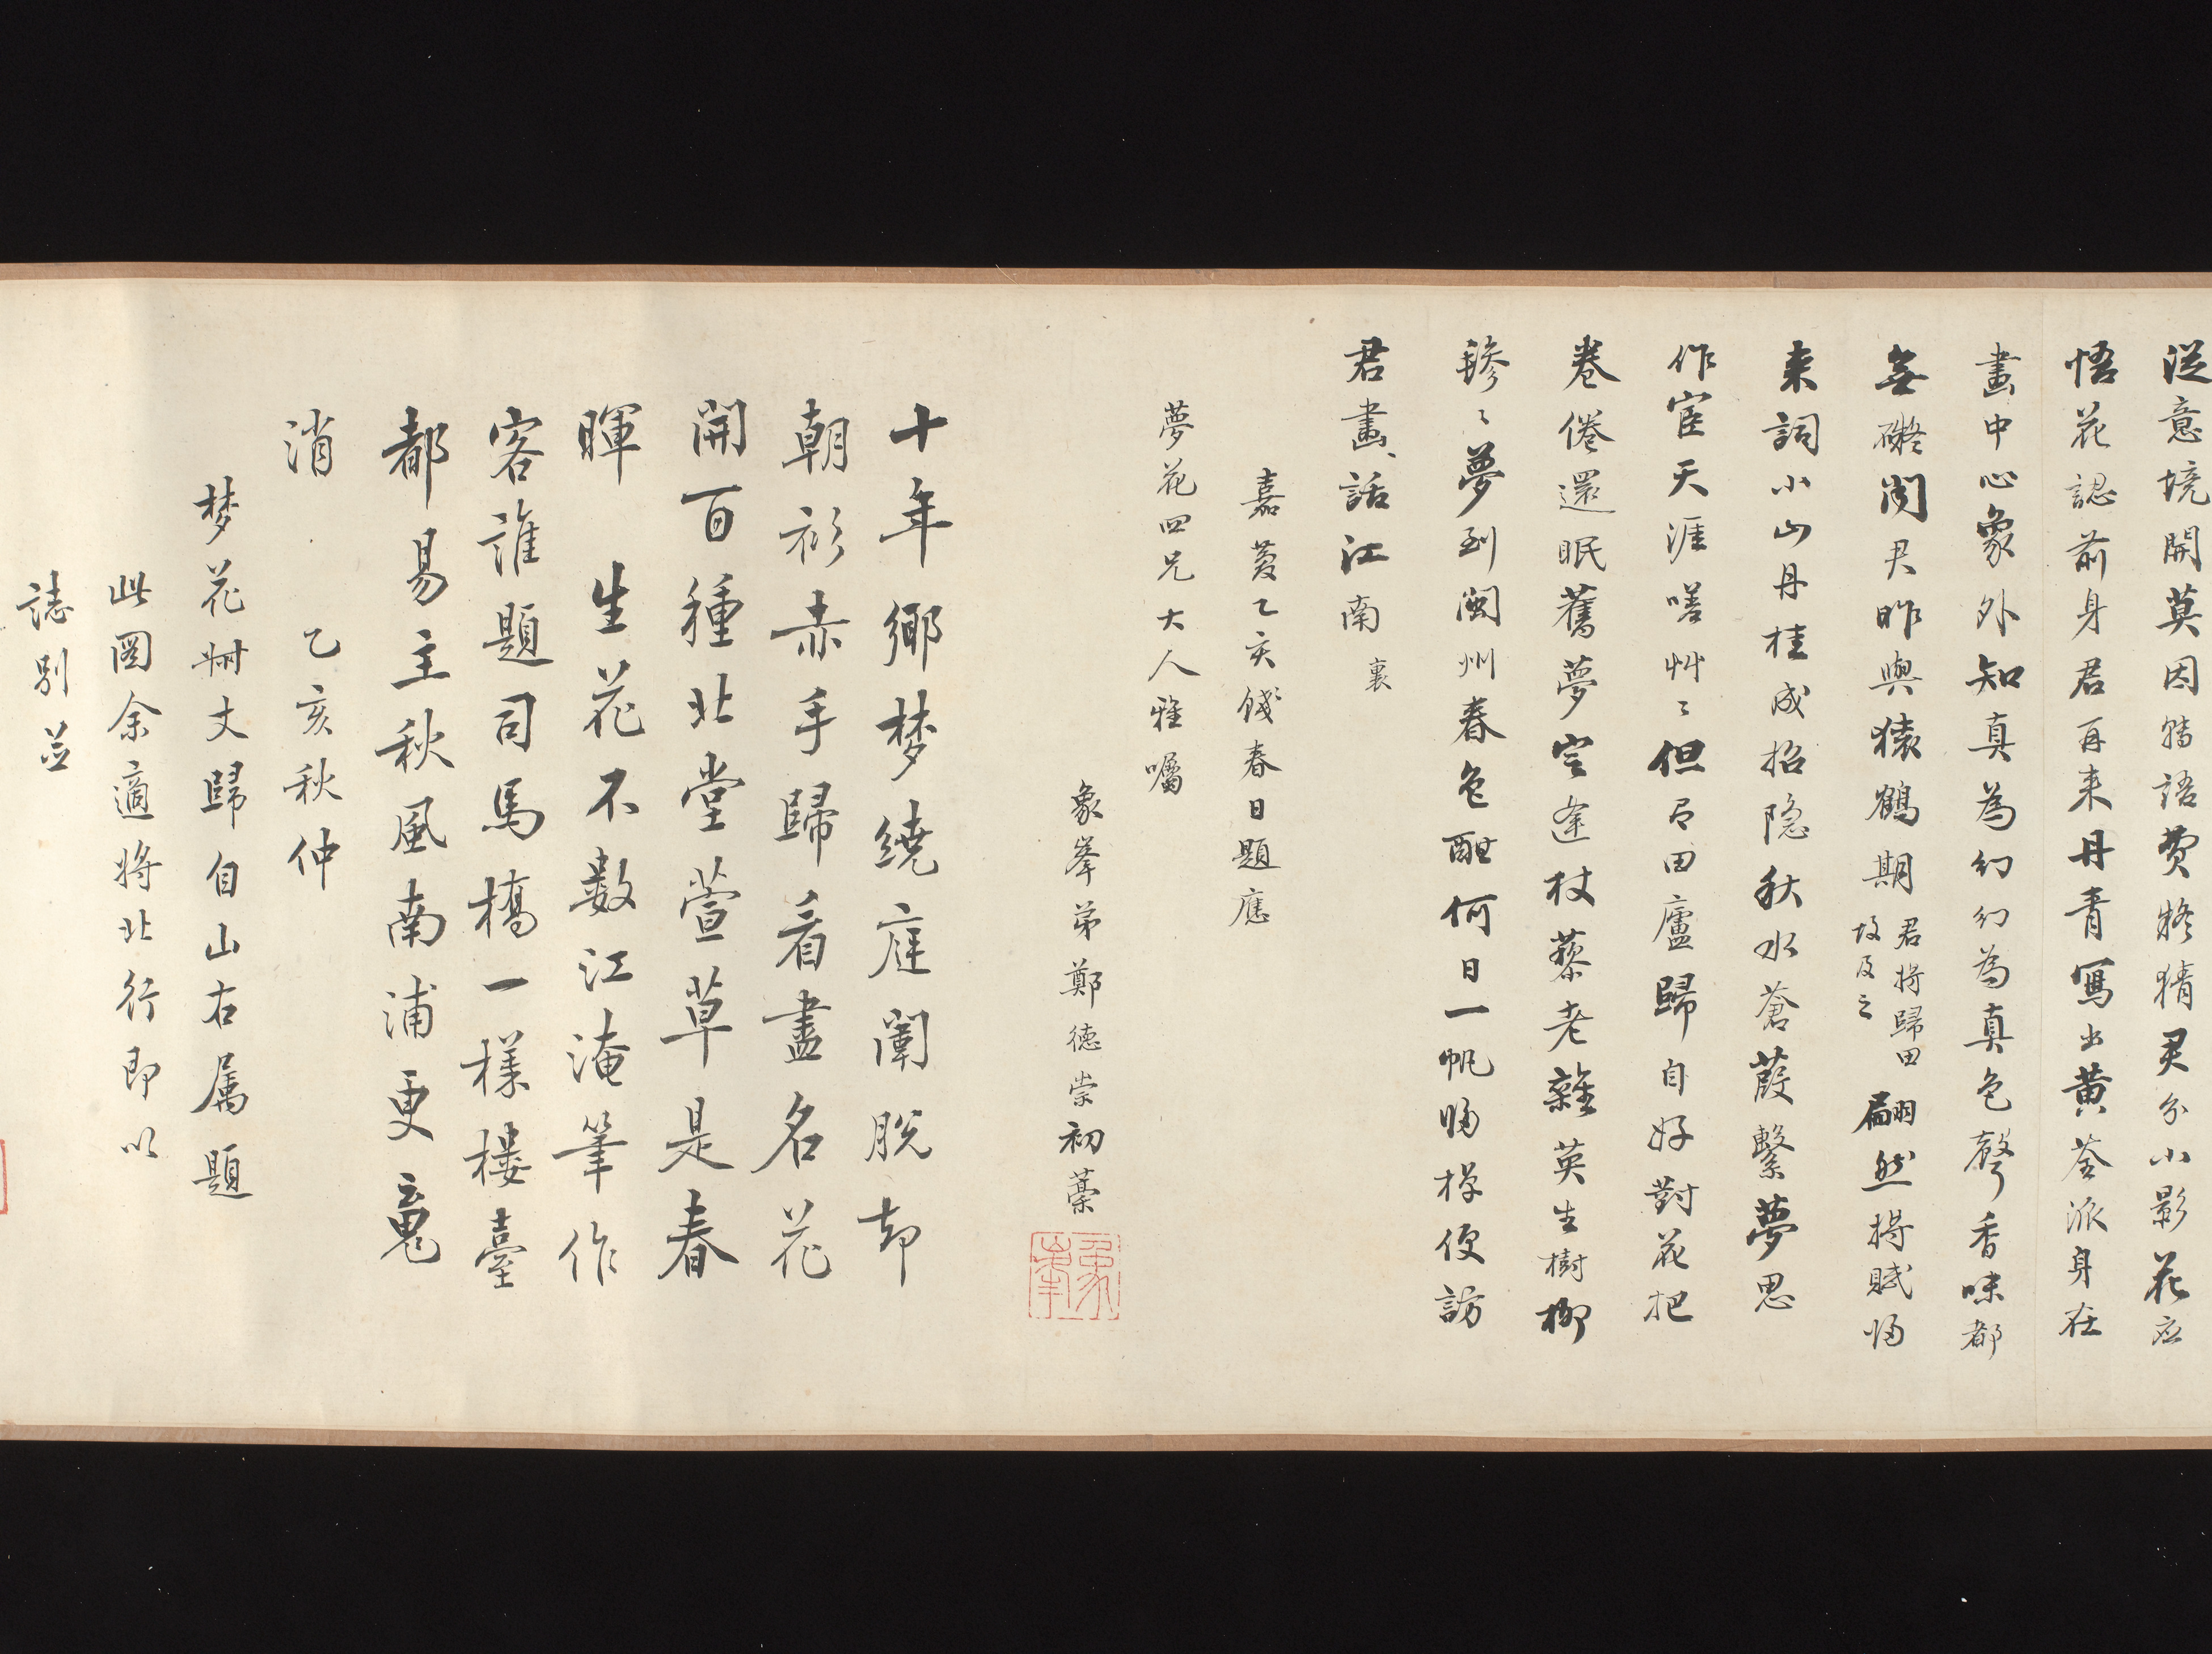 從意境開莫因轉語費疑猜君分小影花應
悟花認前身君再来丹青寫出黃荃派身在
畫中心象外知真為幻幻為真色聲香味都
無礙閑君昨與猿鶴期君將歸田故及之翩然將賦歸
来詞小山丹桂成招隐秋水蒼葭繫夢思
作宦天涯嗟艸〻但有田廬歸自好對花把
卷倦還眠舊夢定逢杖藜老雜英生樹柳
毿〻夢到閩州春色酣何日一帆歸棹便訪
君畫話江南裏
嘉慶乙亥餞春日題應
夢花四兄大人雅囑
象峯弟鄭德崇初藁
象峯
十年鄉梦繞庭闈脫却
朝衫赤手歸看盡名花
開百種北堂萱草是春
暉 生花不數江淹筆作
客誰題司馬橋一樣樓臺
都易主秋風南浦更魂
消 乙亥秋仲
梦花姻丈歸自山右属題
此圖余適將北行即以
誌別並